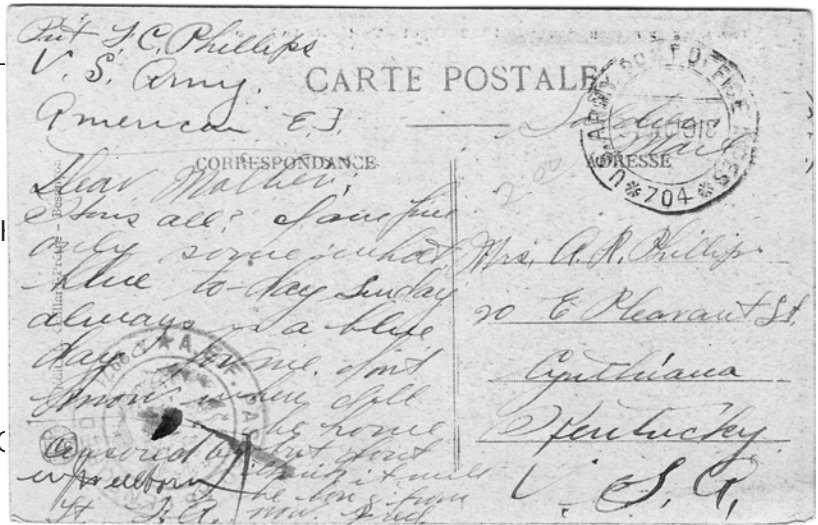 Pvt L C. Phillips
U. S. Army.
American E. F.
CARTE POSTALE
Soldiers
Mail
U.S. ARMY POST OFFICE M.P.E.S.
1918
* 704 *
CORRESPONDANCE
ADRESSE
Dear Mother;
Hows all? I am fine
only somewhat
blue to-day Sunday
always is a blue
day for me. don't
know when I'll
be home
but don't
think it will
be long from
now. Fred
Censored by
Lt.
A.E.F.
Mrs. A. R. Phillips
20 E Pleasant St.
Cynthiana
Kentucky
U. S. A.